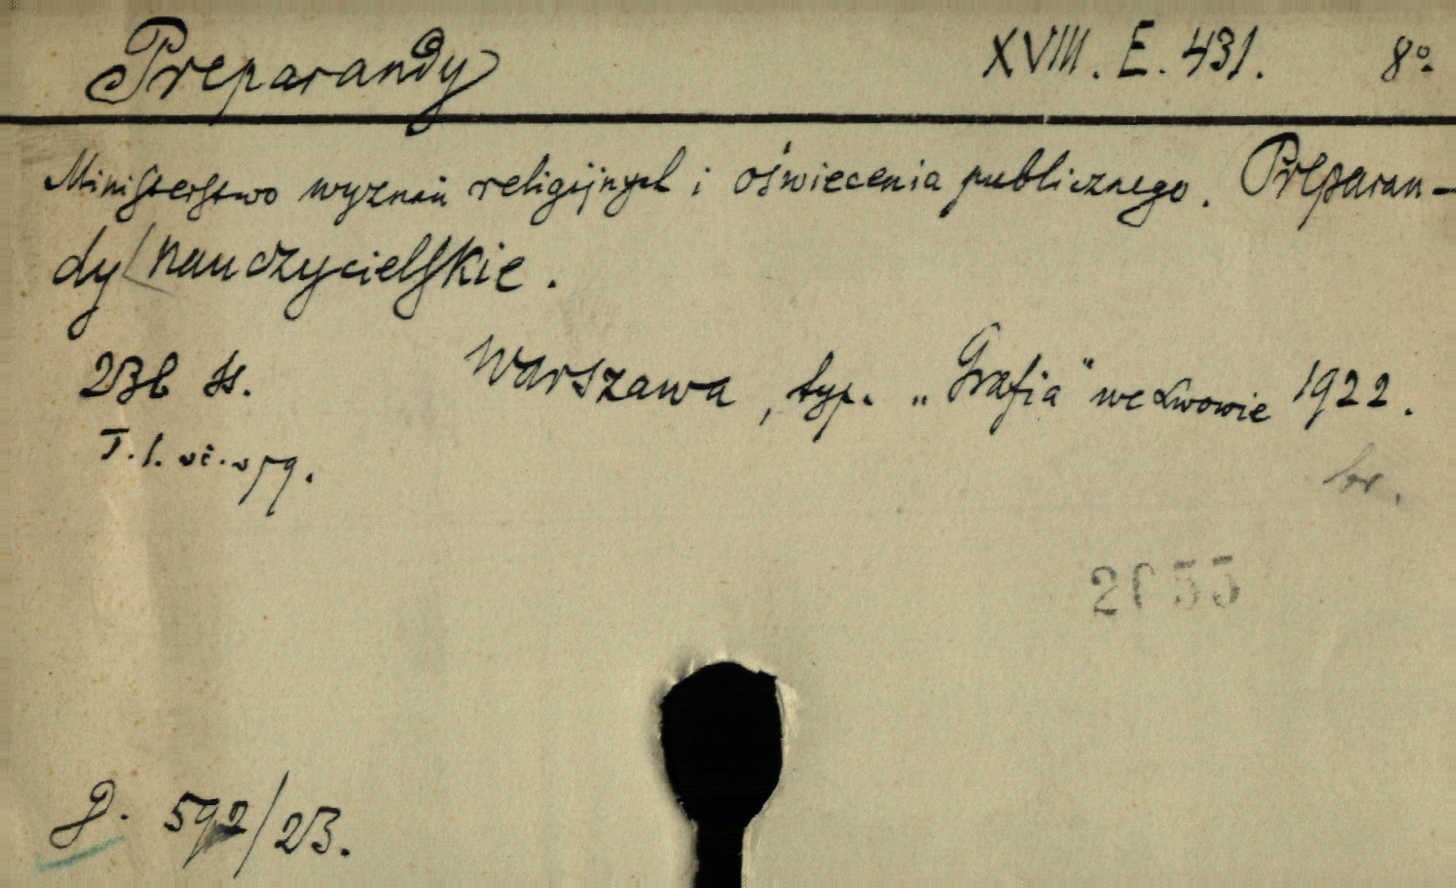 Preparandy XVIII. E. 431. 8º
Ministerstwo wyznań religijnych i oświecenia publicznego. Preparan-
dy nauczycielskie.
Warszawa, typ. „Grafia" we Lwowie 1922.
br.
2055
g. 592/23.